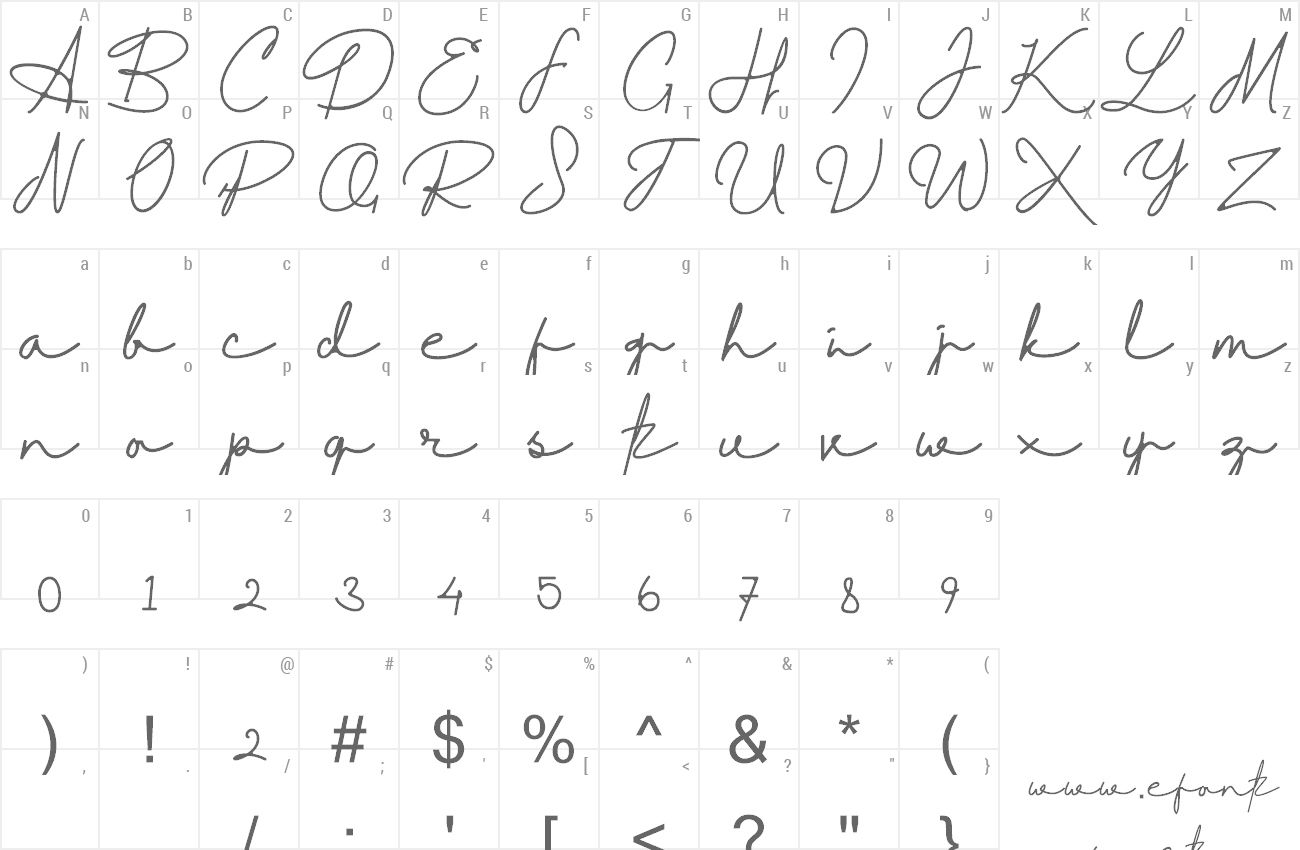 A B C D E F G H I J K L M
A B C D E F G H I J K L M
N O P Q R S T U V W X Y Z
N O P Q R S T U V W X Y Z
a b c d e f g h i j k l m
a b c d e f g h i j k l m
n o p q r s t u v w x y z
n o p q r s t u v w x y z
0 1 2 3 4 5 6 7 8 9
0 1 2 3 4 5 6 7 8 9
) ! @ # $ % ^ & * (
) ! 2 # $ % ^ & * (
, . / ; ' [ < ? " }
www.efont